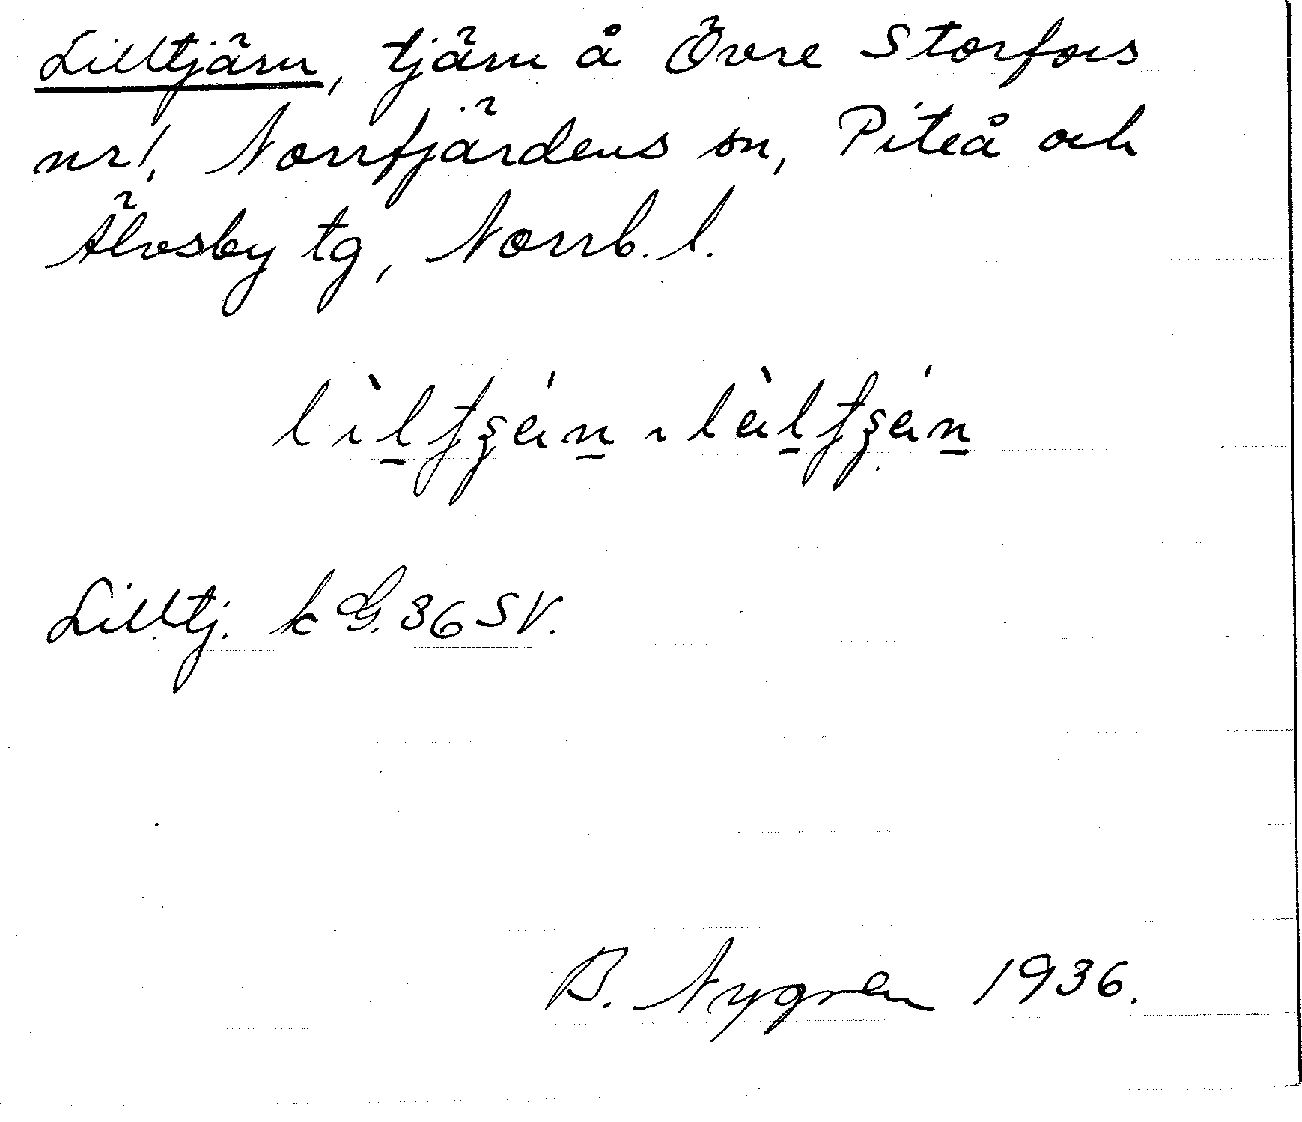 Lilltjärn, tjärn å Övre Storfors
nr1, Norrfjärdens sn, Piteå och
Älvsby tg, Norrb. l.
Lilltj. k G. 36 SV.
B. Nygren 1936.